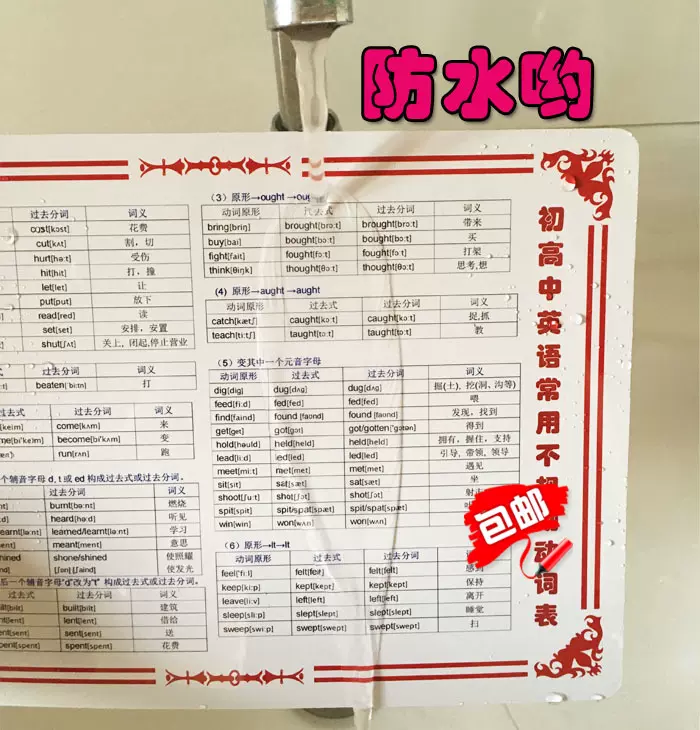 防水哟
过去分词 词义
cost[kɔst] 花费
cut[kʌt] 割，切
hurt[hə:t] 受伤
hit[hit] 打，撞
let[let] 让
put[put] 放下
read[red] 读
set[set] 安排，安置
shut[ʃʌt] 关上,闭起,停止营业
beaten['bi:tn] 打
过去式 过去分词 词义
come[kʌm] 来
become[bi'kʌm] 变
run[rʌn] 跑
辅音字母 d, t或 ed 构成过去式或过去分词。
过去分词 词义
burnt[bə:nt] 燃烧
heard[hə:d] 听见
learned/learnt[lə:nt] 学习
meant[ment] 意思
shone/shined 使照耀
[ʃɔn] [ʃaind] 使发光
后一个辅音字母"d"改为"t" 构成过去式或过去分词。
过去式 过去分词 词义
built[bilt] 建筑
lent[lent] 借给
sent[sent] 送
spent[spent] 花费
（3）原形→ought →ou
动词原形 过去式 过去分词 词义
bring[briŋ] brought[brɔ:t] brought[brɔ:t] 带来
buy[bai] bought[bɔ:t] bought[bɔ:t] 买
fight[fait] fought[fɔ:t] fought[fɔ:t] 打架
think[θiŋk] thought[θɔ:t] thought[θɔ:t] 思考,想
（4）原形→aught →aught
动词原形 过去式 过去分词 词义
catch[kætʃ] caught[kɔ:t] caught[kɔ:t] 捉,抓
teach[ti:tʃ] taught[tɔ:t] taught[tɔ:t] 教
（5）变其中一个元音字母
动词原形 过去式 过去分词 词义
dig[dig] dug[dʌg] dug[dʌg] 掘(土), 挖(洞、沟等)
feed[fi:d] fed[fed] fed[fed] 喂
find[faind] found [faʊnd] found [faʊnd] 发现，找到
get[get] got[gɔt] got/gotten['gɔtən] 得到
hold[həuld] held[held] held[held] 拥有，握住，支持
lead[li:d] led[led] led[led] 引导, 带领, 领导
meet[mi:t] met[met] met[met] 遇见
sit[sit] sat[sæt] sat[sæt] 坐
shoot[ʃu:t] shot[ʃɔt] shot[ʃɔt] 射
spit[spit] spit/spat[spæt] spit/spat[spæt]
win[win] won[wʌn] won[wʌn]
（6）原形→lt→lt
动词原形 过去式 过去分词
feel[fi:l] felt[felt] felt[felt] 感到
keep[ki:p] kept[kept] kept[kept] 保持
leave[li:v] left[left] left[left] 离开
sleep[sli:p] slept[slept] slept[slept] 睡觉
sweep[swi:p] swept[swept] swept[swept] 扫
初高中英语常用不规则动词表
包邮